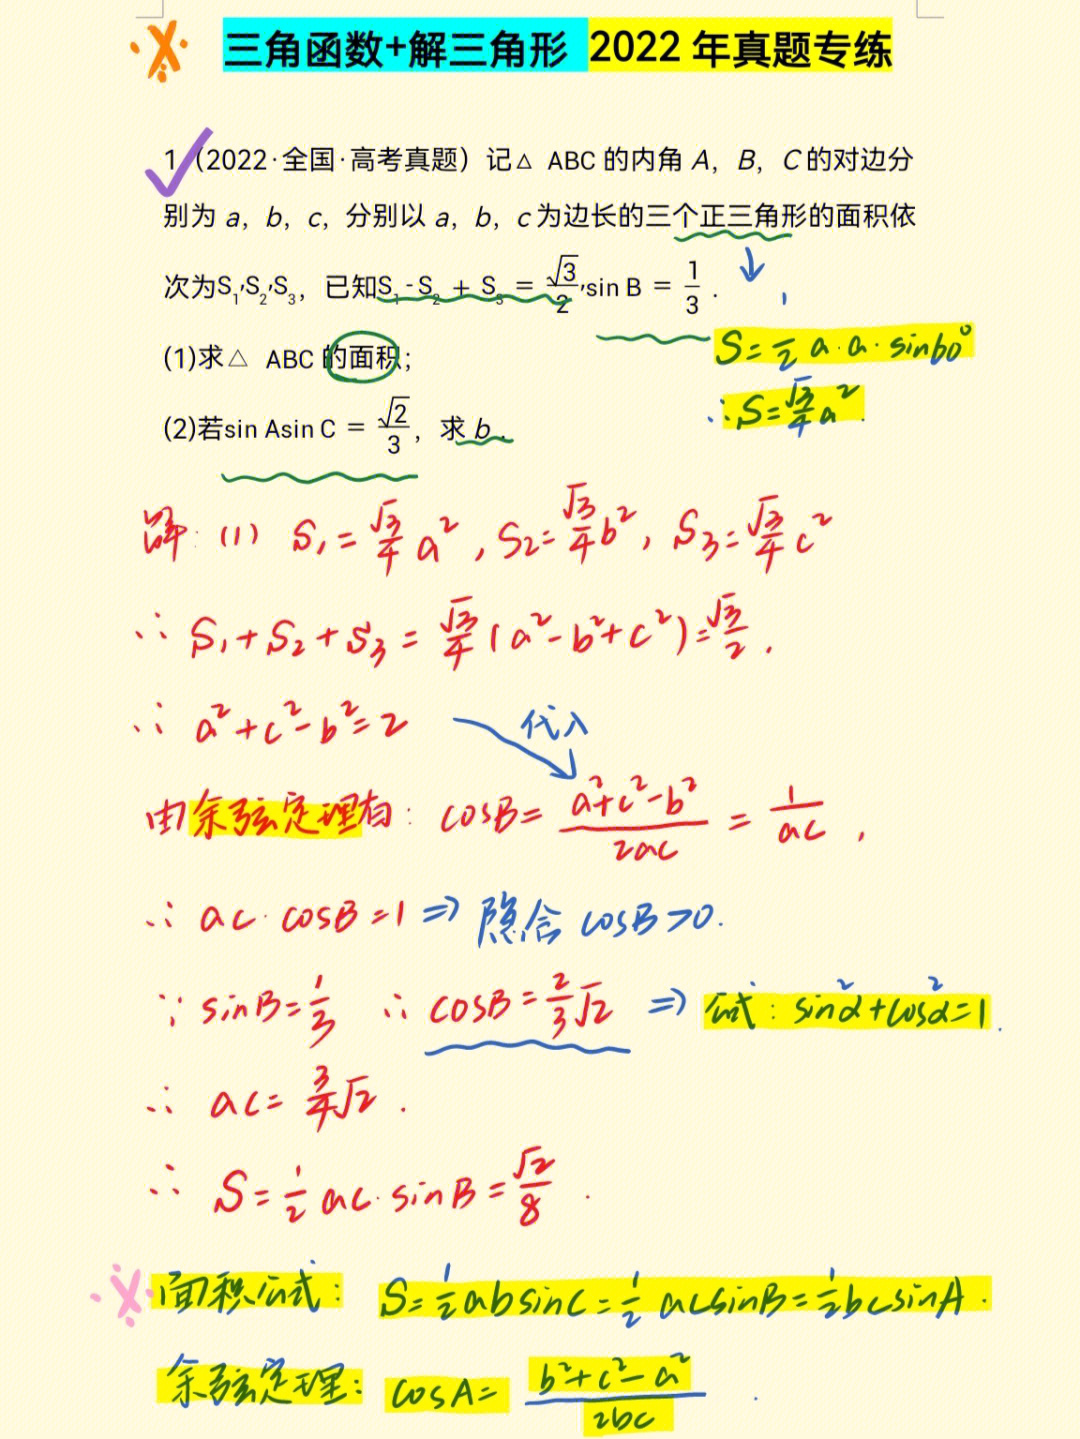 三角函数+解三角形 2022年真题专练
1.(2022·全国·高考真题)记△ ABC 的内角 A,B,C 的对边分
别为 a,b,c,分别以 a,b,c 为边长的三个正三角形的面积依
次为S₁,S₂,S₃,已知S₁-S₂ + S₃ = √3/2,sin B = 1/3 .
(1)求△ ABC 的面积;
S=1/2 a·a·sin60°
∴S=√3/4 a².
(2)若sin Asin C = √2/3,求 b .
解:(1) S₁=√3/4 a²,S₂=√3/4 b²,S₃=√3/4 c²
∴ S₁+S₂+S₃=√3/4(a²-b²+c²)=√3/2.
∴ a²+c²-b²=2 代入
由余弦定理有: cosB=(a²+c²-b²)/2ac=1/ac,
∴ ac·cosB=1 ⇒ 隐含 cosB>0.
∵ sinB=1/3 ∴ cosB=2/3√2 ⇒ 公式:sin²α+cos²α=1.
∴ ac=3/4√2.
∴ S=1/2 ac·sinB=√2/8.
面积公式: S=1/2absinC=1/2acsinB=1/2bcsinA.
余弦定理: cosA=(b²+c²-a²)/2bc.